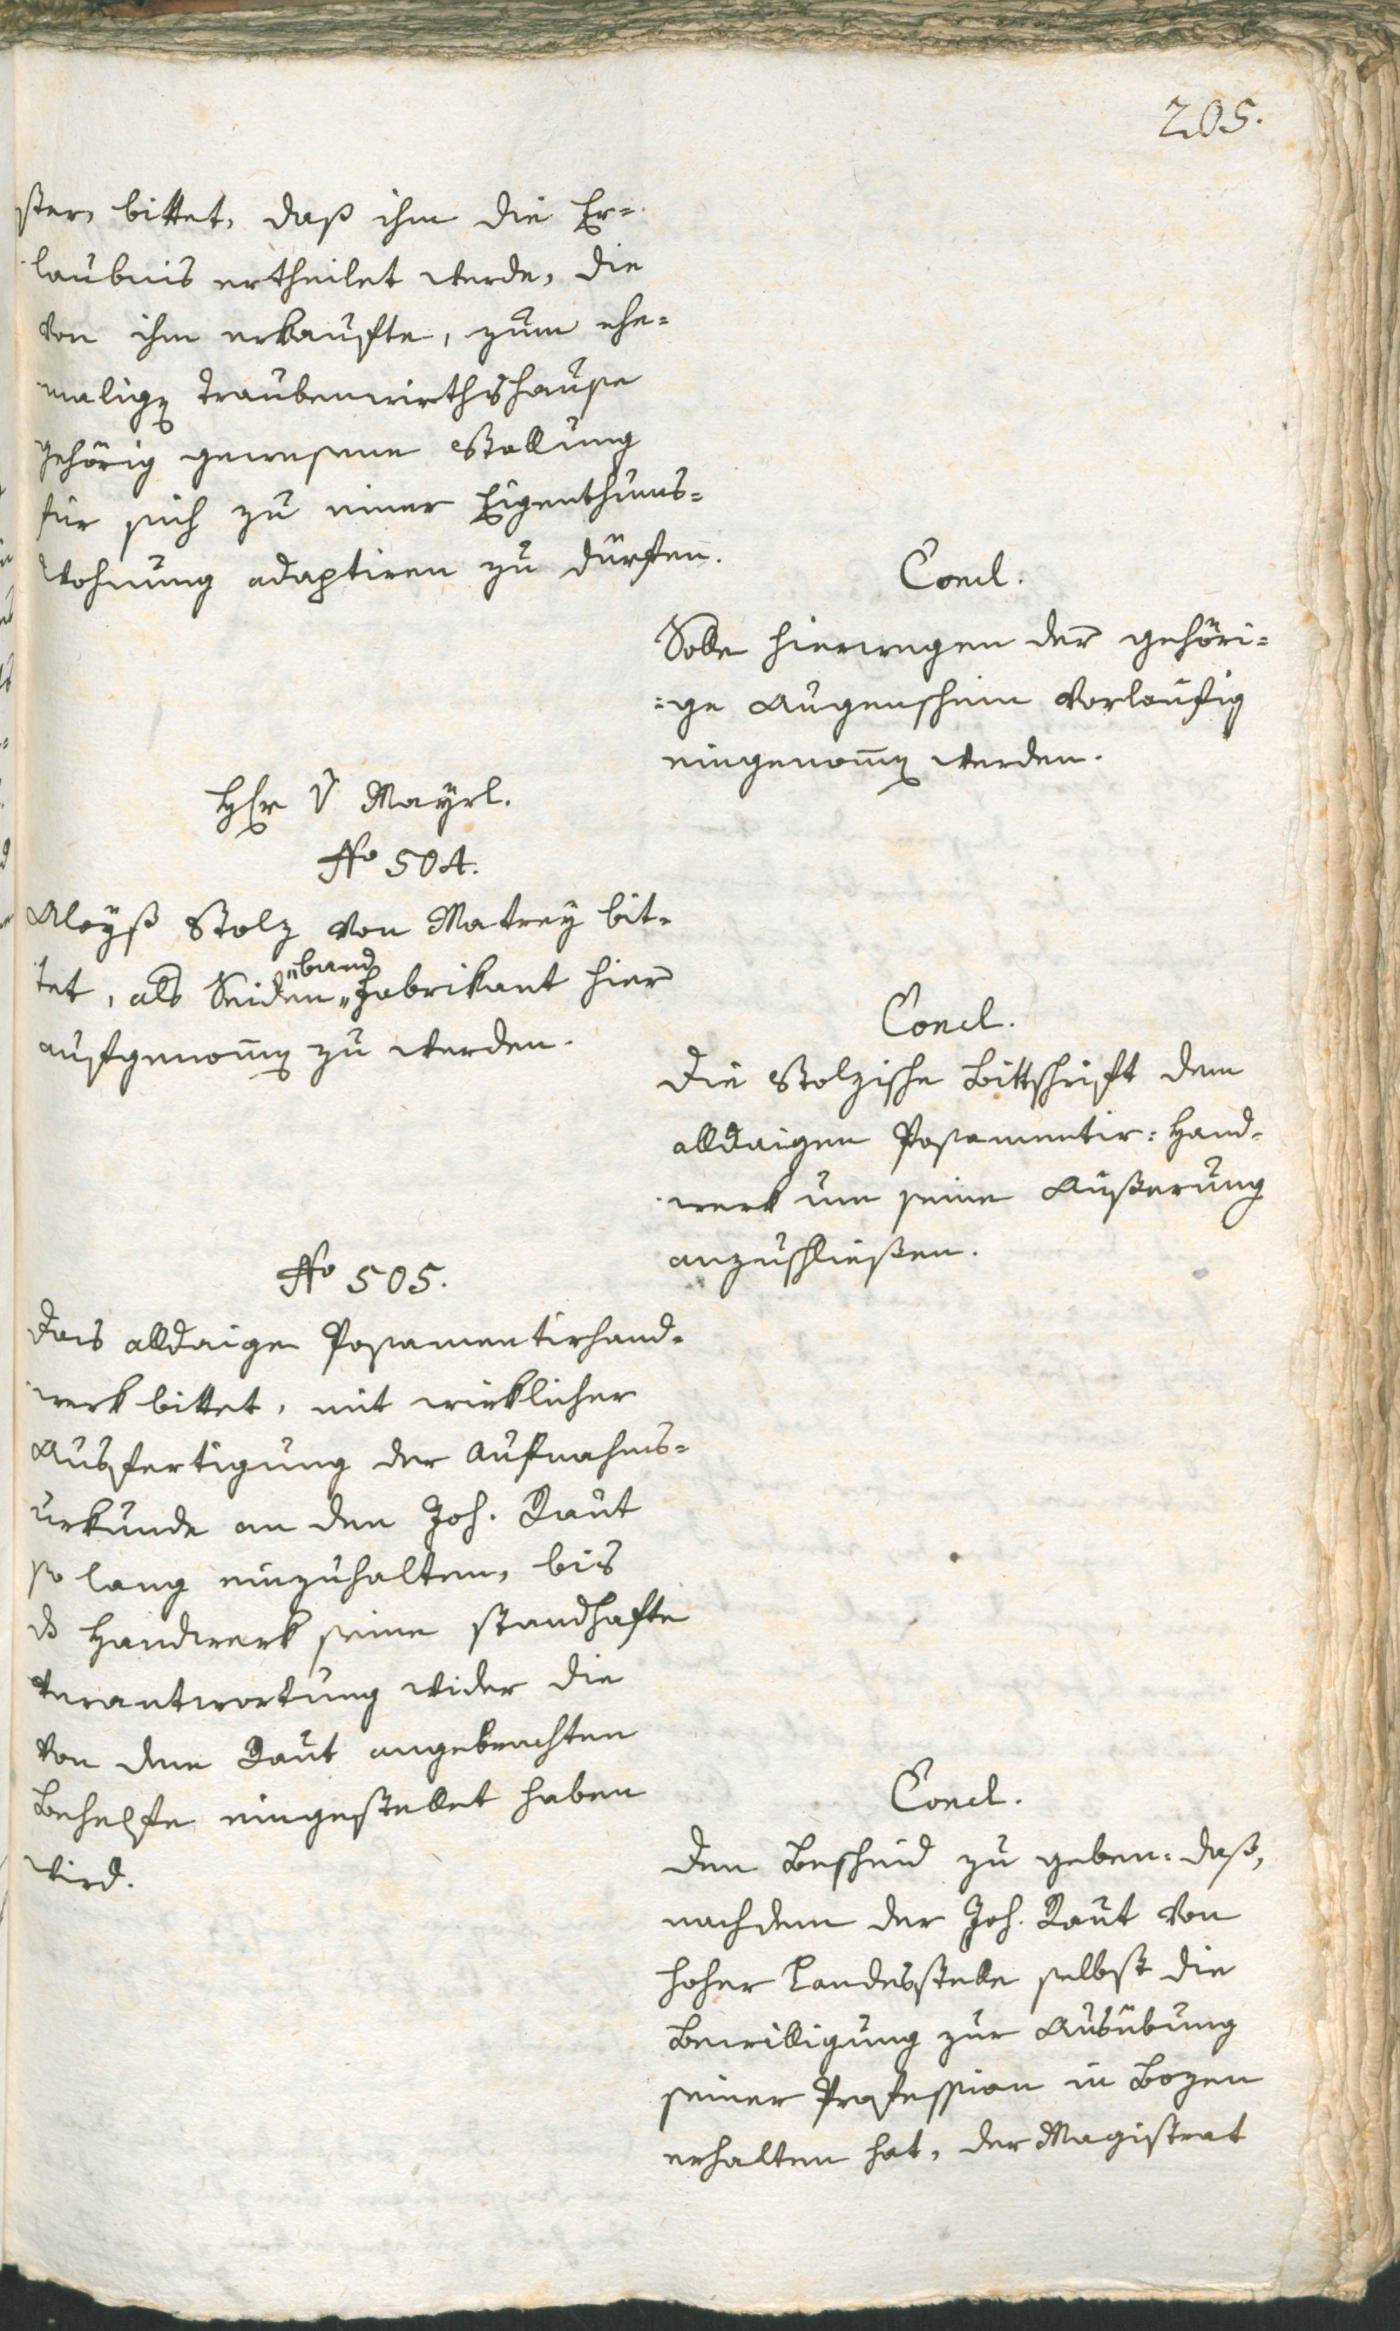 205.
ster, bittet, daß ihm die Er=
laubnis ertheilet werde, die
von ihm erkaufte, zum ehe=
malign Traubenwirthshause
gehörig gewesene Stallung
für sich zu einer Eigenthums=
wohnung adaptiren zu dürfen.
Concl.
Solle hierwegen der gehöri=
=ge Augenschein vorläufig
eingenomn werden.
Hr v Mayrl.
No 504.
Aloyß Stolz von Matrey bit=
tet, als Seiden„band„Fabrikant hier
aufgenomn zu werden.
Concl.
Die Stolzische Bittschrift dem
alldaigen Posamentir=Hand=
werk um seine Äußerung
anzuschließen.
No 505.
Das alldaige Posamentirhand=
werk bittet, mit wirklicher
Ausfertigung der Aufnahms=
urkunde an den Joh. Raut
so lang einzuhalten, bis
ds Handwerk seine standhafte
Verantwortung wider die
von dem Raut angebrachten
Behelfe eingestellet haben
wird.
Concl.
Den Bescheid zu geben: daß,
nachdem der Joh. Raut von
hoher Landesstelle selbst die
Bewilligung zur Ausübung
seiner Profession in Bozen
erhalten hat, der Magistrat